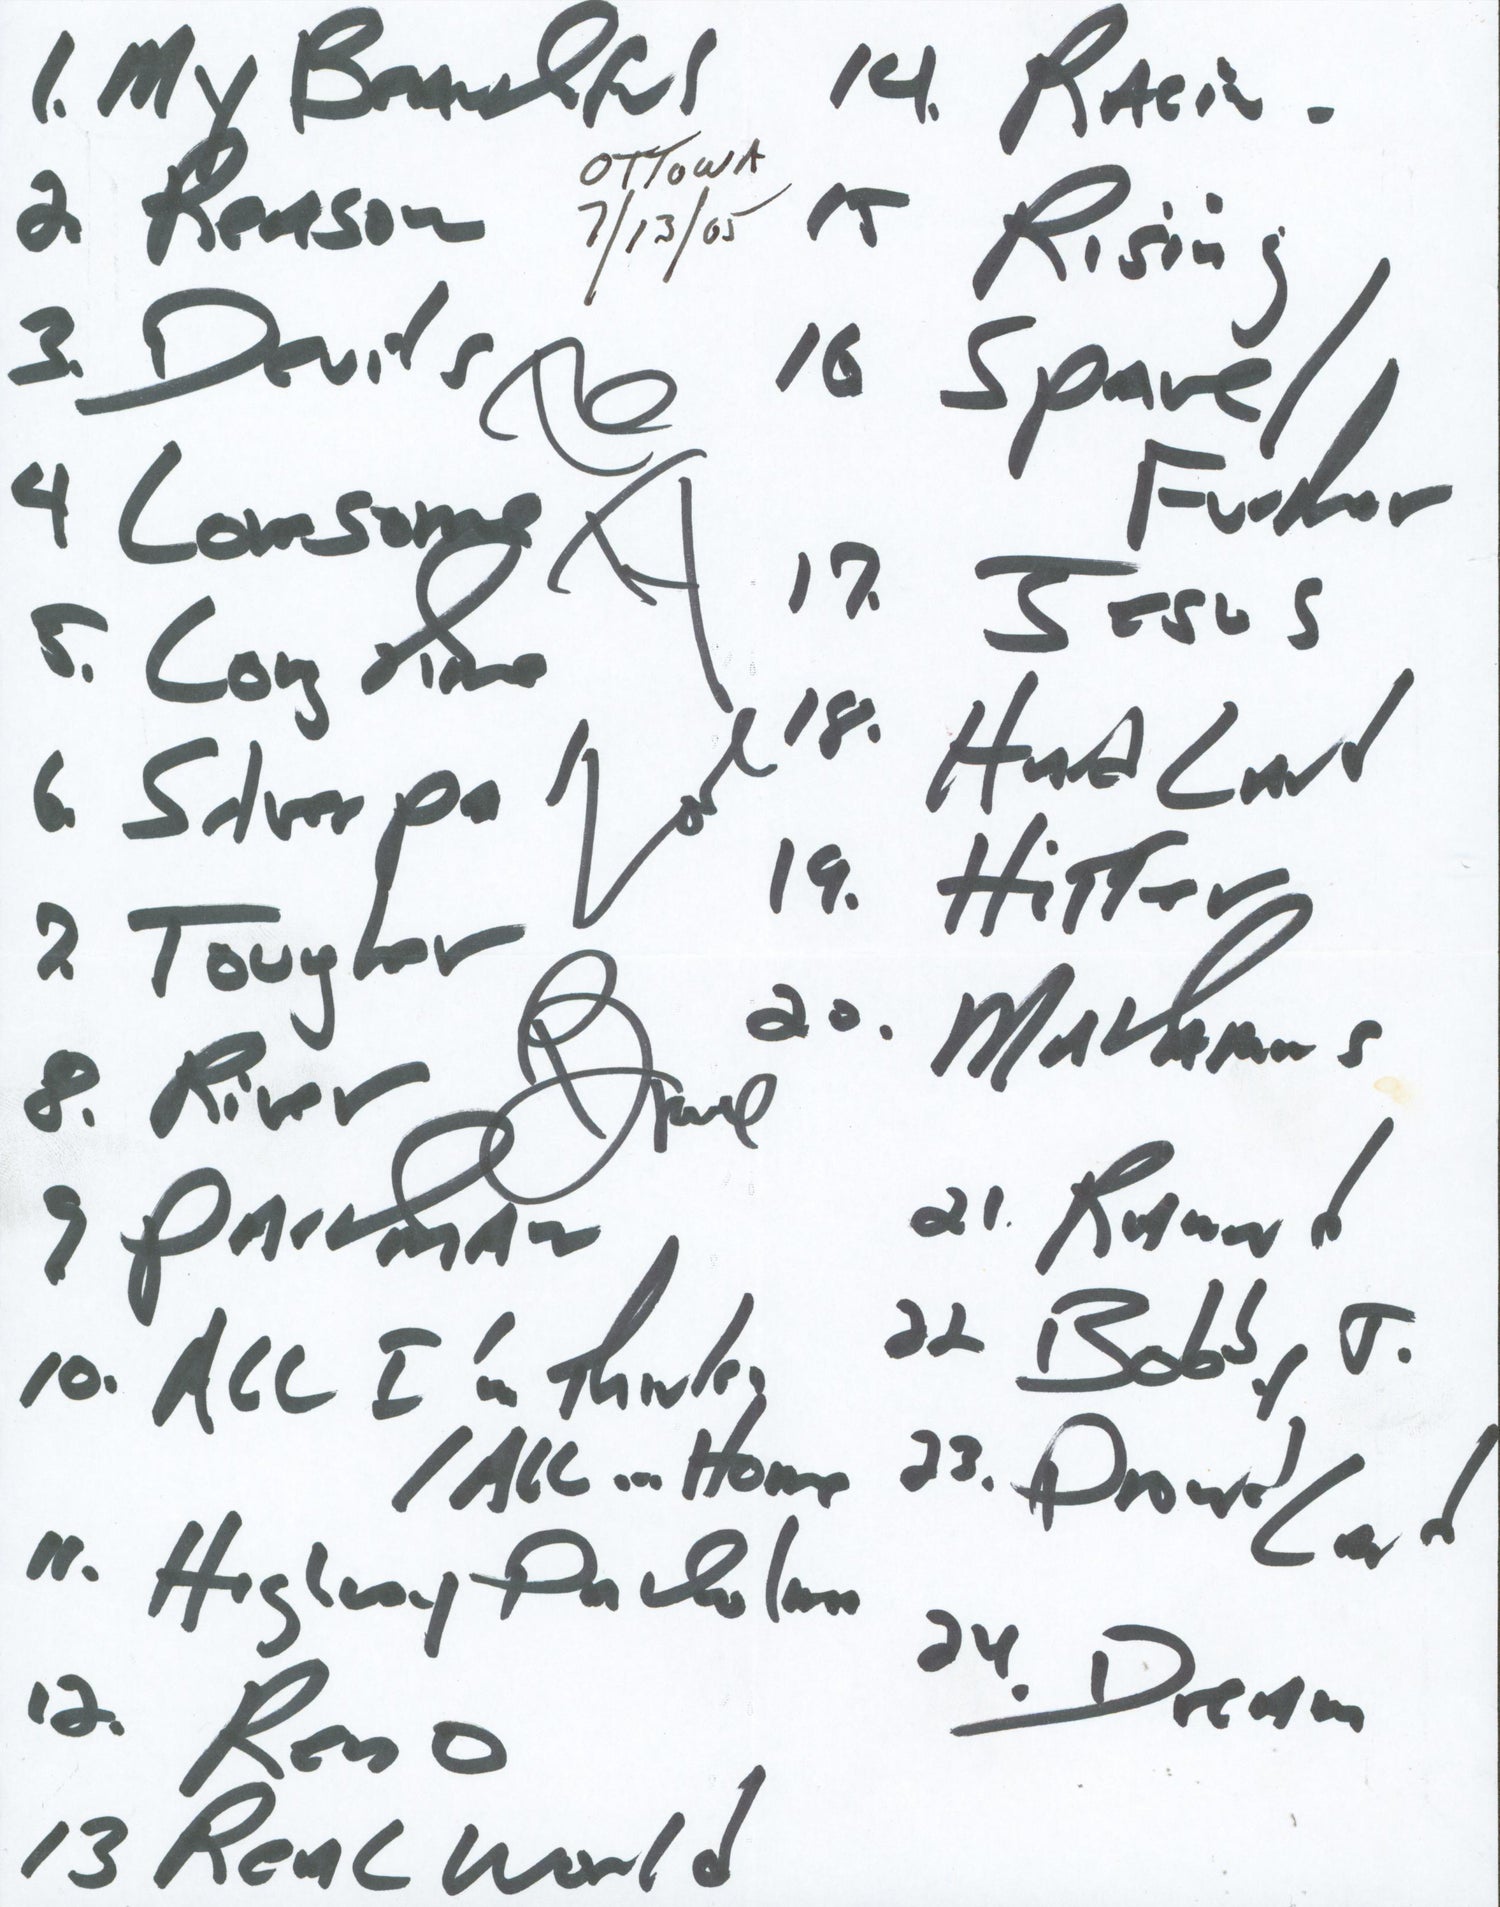 1. My Beautiful
2. Reason
OTTOWA
7/13/05
3. Devils
4 Lonesome
5. Long time
6. Silverpa
7. Tougher
8. River
Bruce
9 Partman
10. ALL I'm Thinkin
/ ALL ... Home
11. Highway Patrolman
12. Reno
13 Real World
14. Racin.
15 Rising
16 Spare/
Further
17. Jesus
18. Hard Land
19. Hitter
20. Matamoros
21. Ramrod
22 Bobby J.
23. Prom'd Land
24. Dream